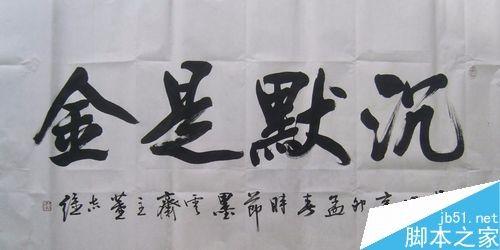 沉默是金
辛卯孟春時節墨雲齋主蓋志
jb51.net
脚本之家